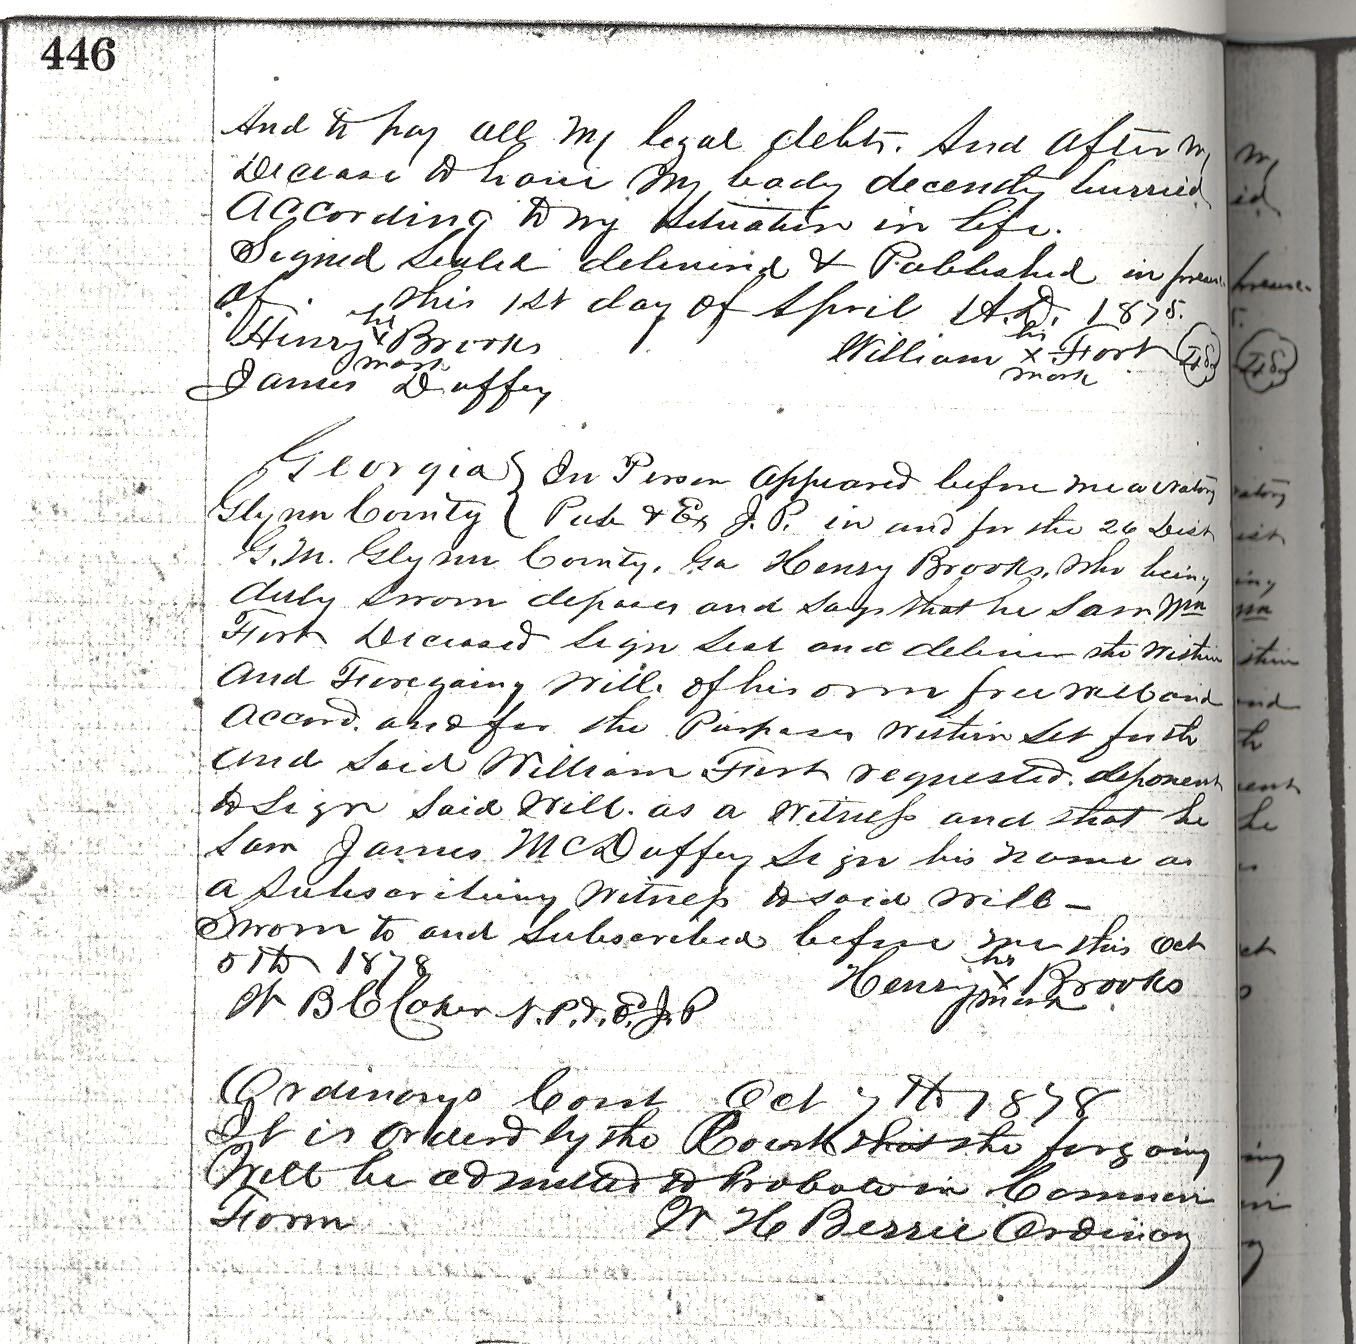 446
And to pay all my legal debts. And after my
Decease to have my body decently burried
According to my situation in life.
Signed Sealed delivered & Published in presence
of. this 1st day of April A.D. 1875.
Henry his x mark Brooks William his x mark Fort L.S.
James Duffey
Georgia } In Person appeared before me a Notary
Glynn County { Pub & Ex J.P. in and for the 26 Dist
G.M. Glynn County, Ga Henry Brooks, who being
duly sworn deposes and says that he saw Wm
Fort Deceased sign seal and deliver the within
And Foregoing Will. of his own free will and
Accord. and for the Purposes within set forth
and said William Fort requested. deponent
to sign said Will. as a Witness and that he
saw James McDuffey sign his name as
a Subscribing Witness to said Will –
Sworn to and Subscribed before me this Oct
5th 1878 Henry his x mark Brooks
W B C Coker N.P. & E. J. P
Ordinarys Court Oct 7th 1878
It is ordered by the Court that the forgoing
Will be admitted to Probate in Common
Form W H Berrie Ordinary